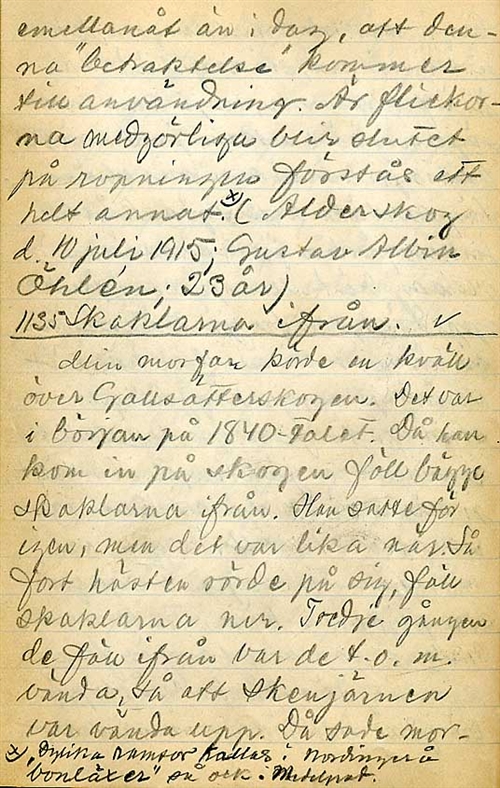 emellanåt än i dag, att den-
na "betraktelse" kommer
till användning. Är flickor-
na medgörliga blir slutet
på ropningen förstås ett
helt annat.x) ( Alderskog
d. 10 juli 1915; Gustav Albin
Öhlén; 23 år)
1135 Skaklarna ifrån. v
Min morfar körde en kväll
över Gallsätterskogen. Det var
i början på 1840-talet. Då han
kom in på skogen föll bägge
skaklarna ifrån. Han satte för
igen, men det var lika när. Så
fort hästen rörde på sig, föll
skaklarna ner. Tredje gången
de föll ifrån var de t.o.m.
vända, så att skenjärnen
var vända upp. Då sade mor-
x) "Dylika ramsor kallas i Nordingrå
"bonläxer" så ock i Medelpad.